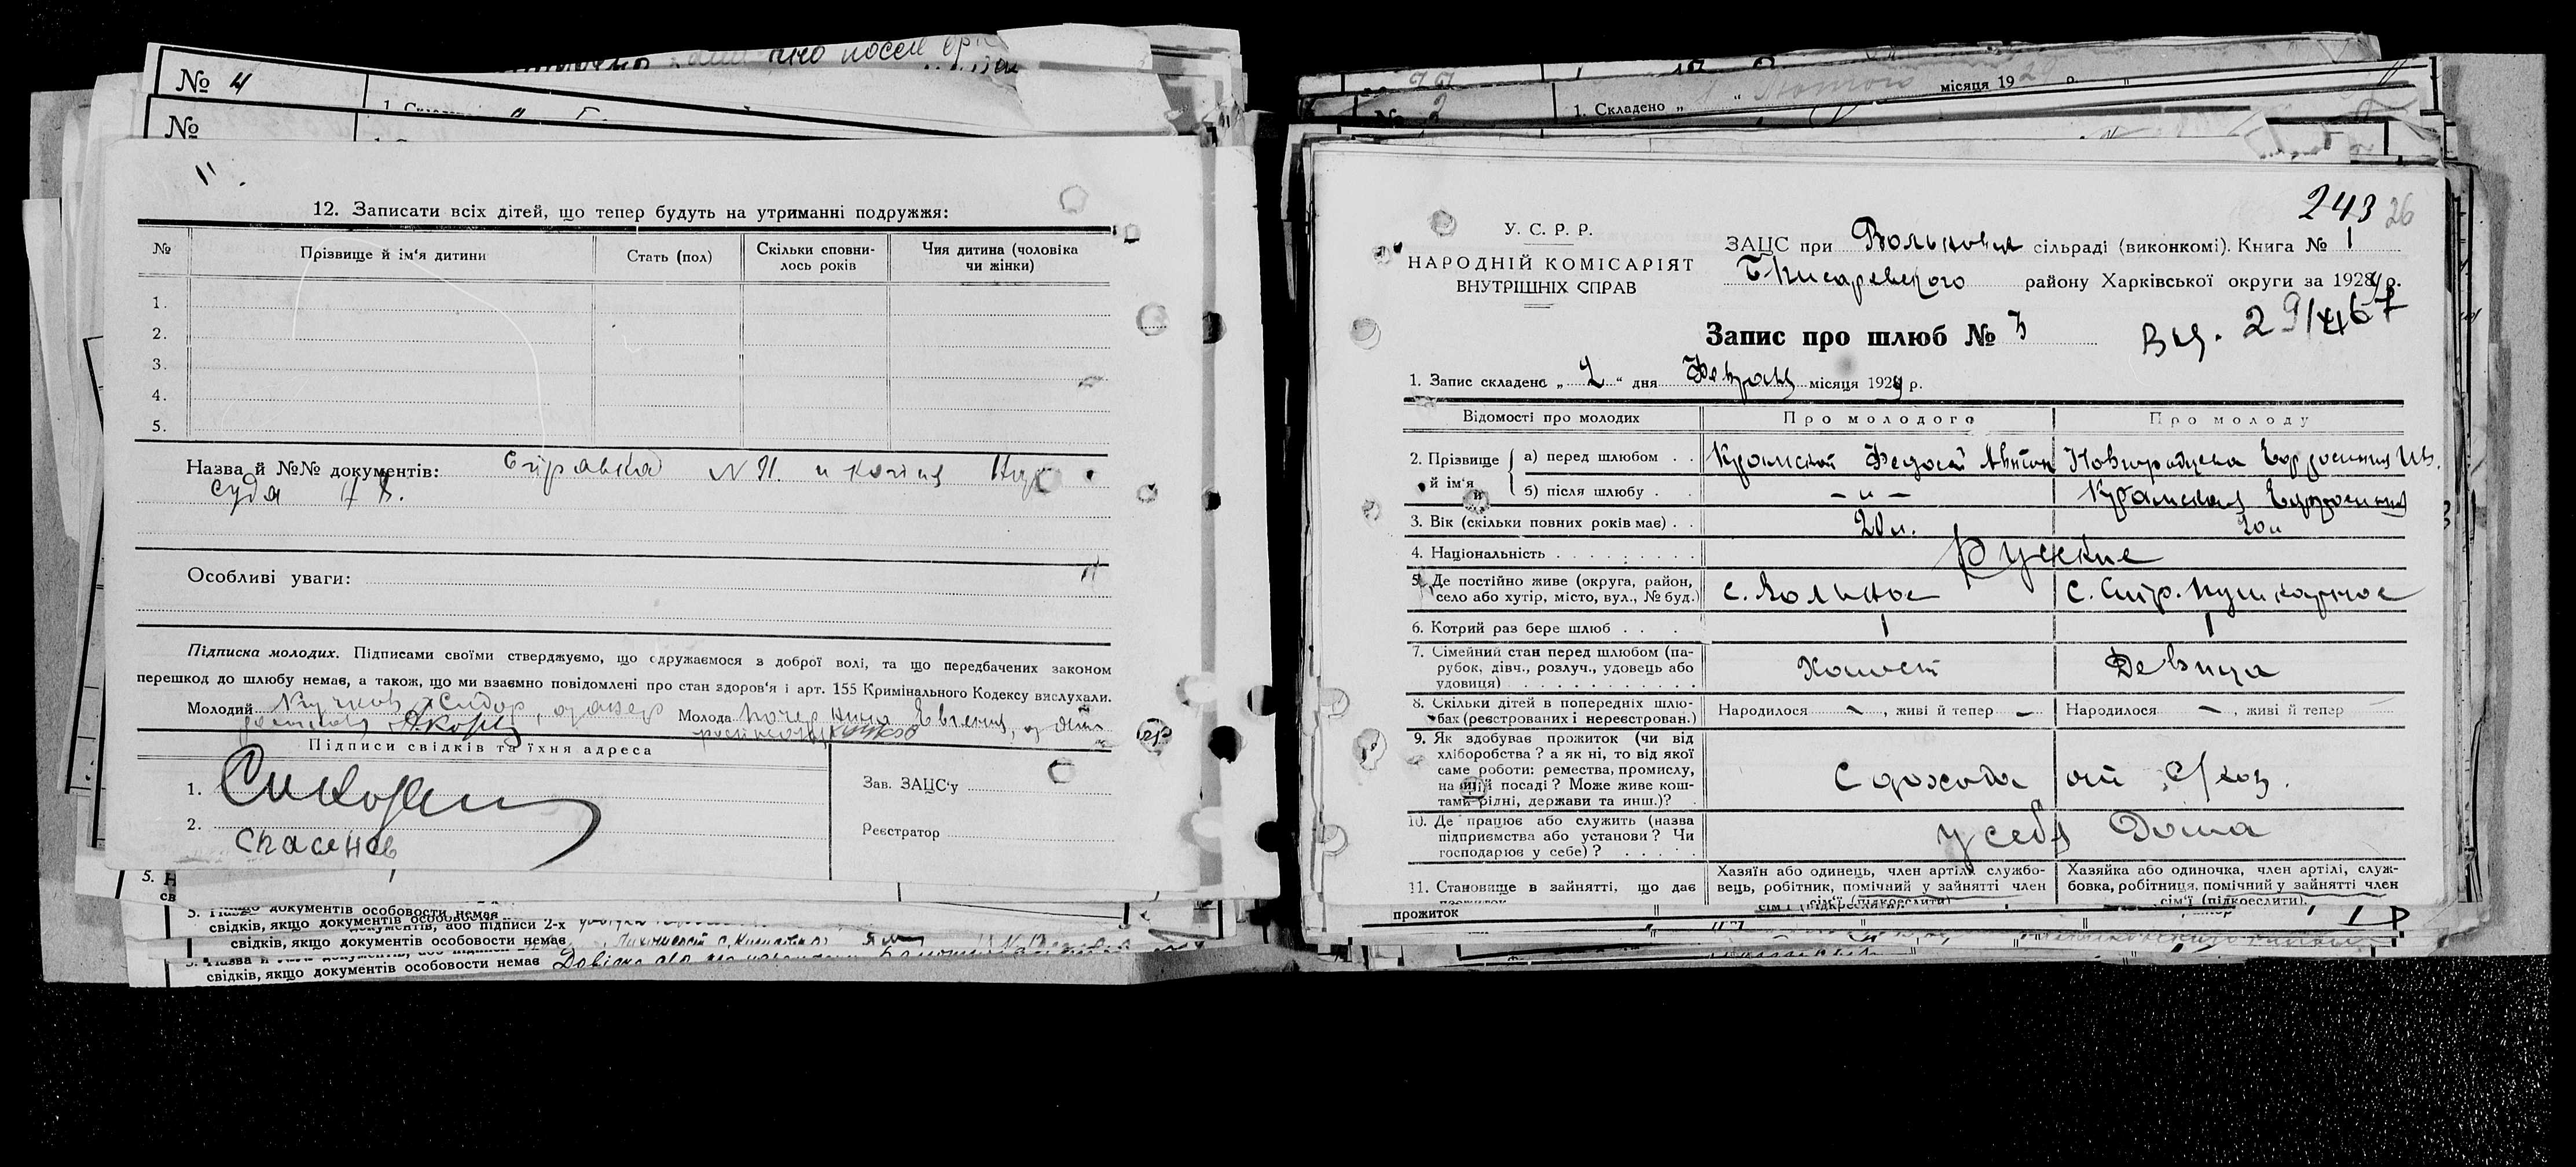 № 4
№
12. Записати всіх дітей, що тепер будуть на утриманні подружжя:
№ Прізвище й ім'я дитини Стать (пол) Скільки сповни-лось років Чия дитина (чоловіка чи жінки)
1.
2.
3.
4.
5.
Назва й №№ документів: Справка N 11. и копия Нар
суда
Особливі уваги:
Підписка молодих. Підписами своїми стверджуємо, що одружаємося з доброї волі, та що передбачених законом
перешкод до шлюбу немає, а також, що ми взаємно повідомлені про стан здоров'я і арт. 155 Кримінального Кодексу вислухали.
Молодий Молода
Підписи свідків та їхня адреса
1.
2. Спасенов
Зав. ЗАЦС'у
Реєстратор
свідків, якщо документів особовости немає
свідків, якщо документів особовости немає
свідків, якщо документів особовости немає
1. Складено „ “ місяця 19
№ 2
243 26
У. С. Р. Р.
НАРОДНІЙ КОМІСАРІЯТ
ВНУТРІШНІХ СПРАВ
ЗАЦС при сільраді (виконкомі). Книга № 1
Б-Писаревского району Харківської округи за 1929 р.
Запис про шлюб № 3
29/467
1. Запис складено „ 2 “ дня Февраля місяця 1929 р.
Відомості про молодих Про молодого Про молоду
2. Прізвище й ім'я
а) перед шлюбом . . Крамской Федосей Антон Новгородцева Ефросиния Ив.
б) після шлюбу . . — „ — Крамская Ефросиния
3. Вік (скільки повних років має) . . 20 л. 20 л
4. Національність . . . . . . . . Русские
5. Де постійно живе (округа, район,
село або хутір, місто, вул., № буд.) с. Вольное с. Стар. Пушкарное
6. Котрий раз бере шлюб . . . 1 1
7. Сімейний стан перед шлюбом (па-
рубок, дівч., розлуч., удовець або
удовиця) . . . . . . . . . . . Холост Девица
8. Скільки дітей в попередніх шлю-
бах (реєстрованих і нереєстрован.) Народилося — , живі й тепер — Народилося — , живі й тепер —
9. Як здобуває прожиток (чи від
хліборобства? а як ні, то від якої
саме роботи: ремества, промислу,
на якій посаді? Може живе кош-
тами рідні, держави та инш.)? С дохода от с/хоз.
10. Де працює або служить (назва
підприємства або установи? Чи
господарює у себе)? . . . . . у себя Дома
11. Становище в зайнятті, що дає
прожиток
Хазяїн або одинець, член артілі, службо-
вець, робітник, помічний у зайнятті член
сім'ї (підкреслити).
Хазяйка або одиночка, член артілі, служ-
бовка, робітниця, помічний у зайнятті член
сім'ї (підкреслити).